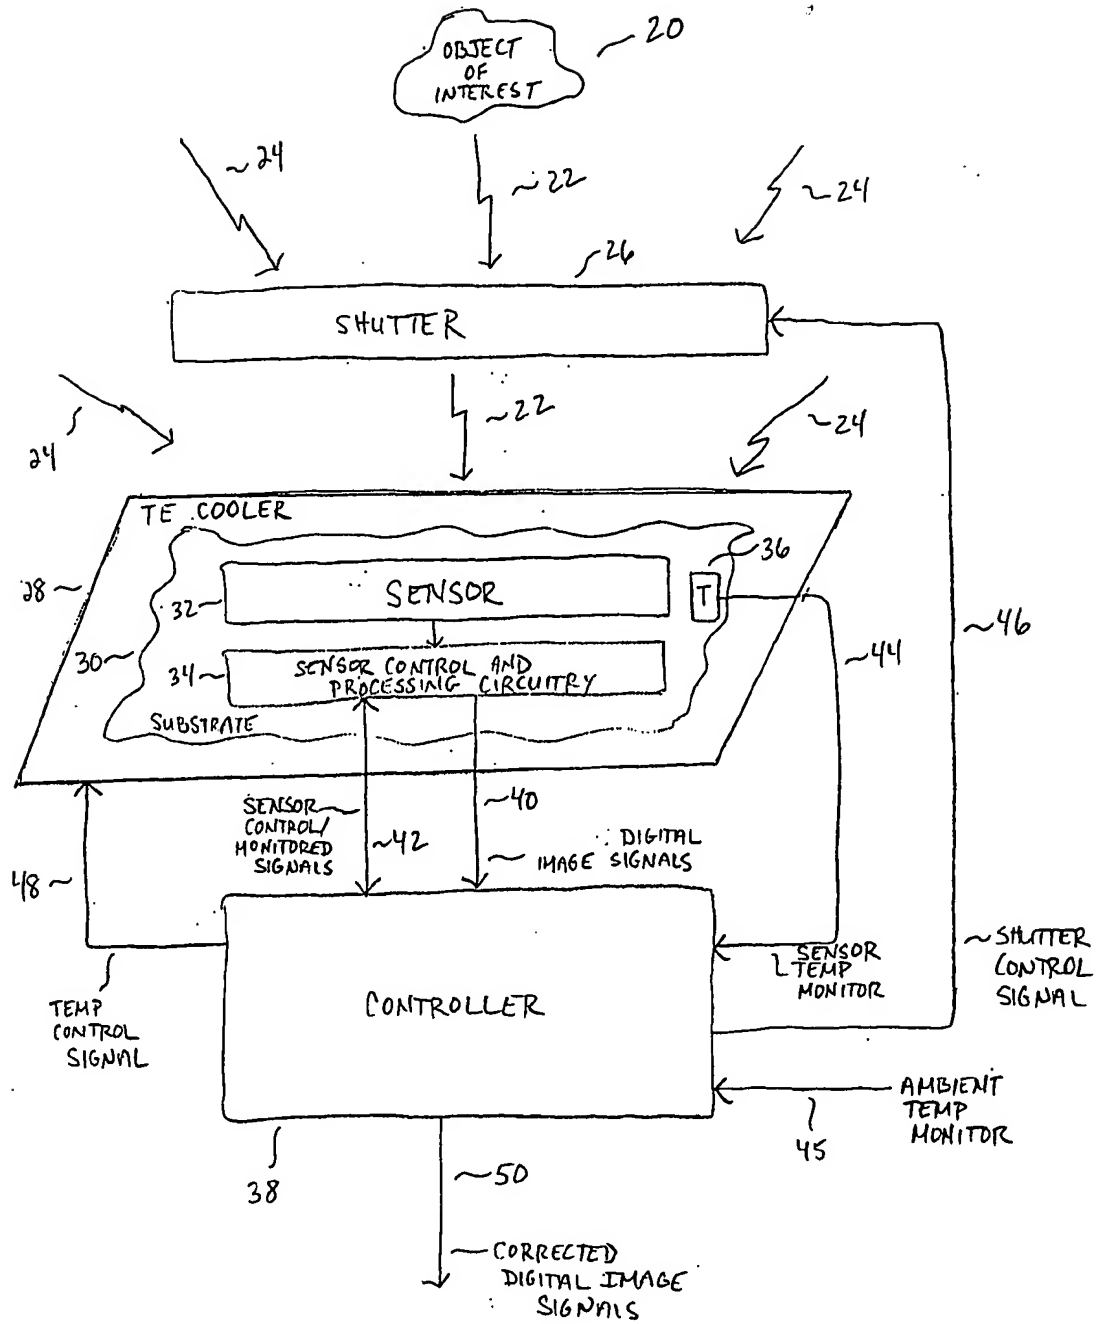 OBJECT
OF
INTEREST
20
24
22
24
26
SHUTTER
22
24
24
TE COOLER
36
28
SENSOR
T
32
46
30
34
SENSOR CONTROL AND
PROCESSING CIRCUITRY
44
SUBSTRATE
SENSOR
CONTROL/
MONITORED
SIGNALS
42
40
DIGITAL
IMAGE SIGNALS
48
SENSOR
TEMP
MONITOR
SHUTTER
CONTROL
SIGNAL
CONTROLLER
TEMP
CONTROL
SIGNAL
AMBIENT
TEMP
MONITOR
45
38
50
CORRECTED
DIGITAL IMAGE
SIGNALS